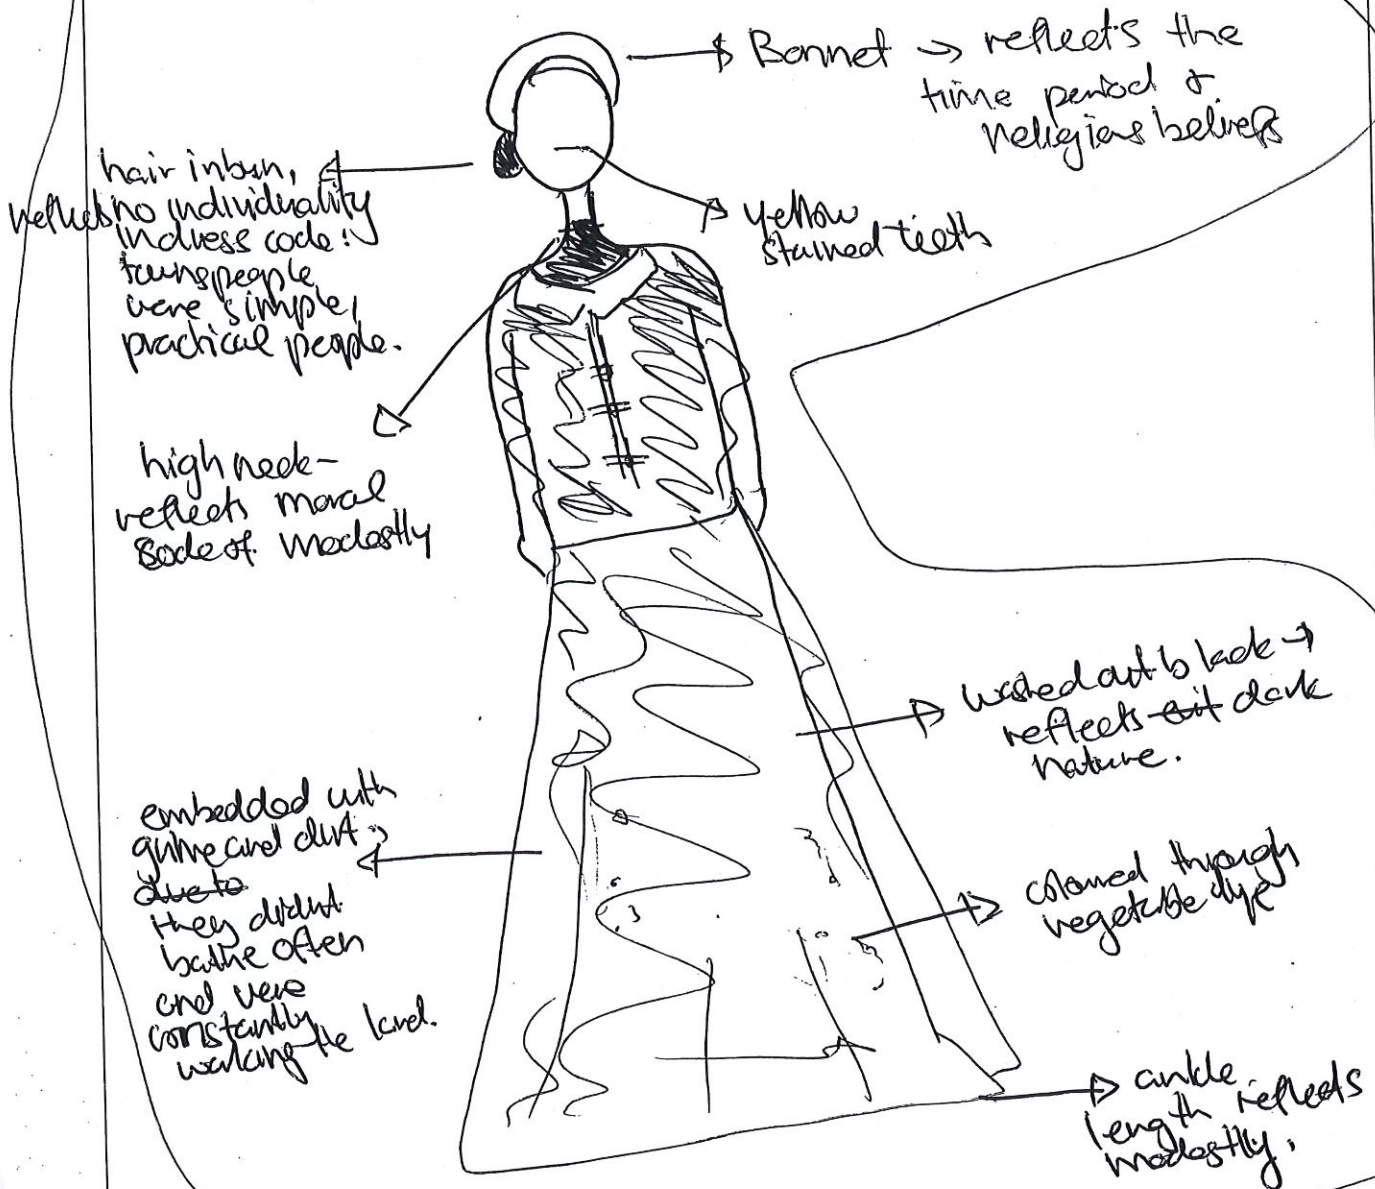 Bonnet → reflects the
time period &
religious beliefs
hair in bun,
reflects no individuality
in dress code:
townspeople
were simple,
practical people.
yellow
stained teeth
high neck -
reflects moral
code of modestly
washed out black →
reflects evil dark
nature.
embedded with
grime and dirt;
due to
they didnt
bathe often
and were
constantly
working the land.
coloured through
vegetable dye
ankle
length reflects
modestly.